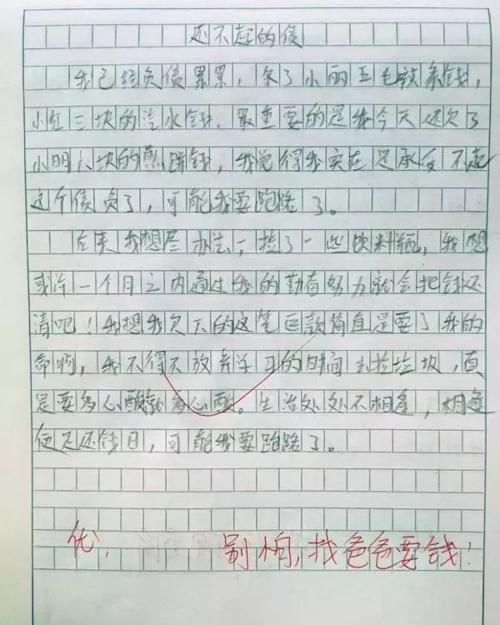 还不起的债
我已经负债累累，欠了小丽五毛软条钱，
小红三块的汽水钱，最重要的是我今天还欠了
小明八块的煎饼钱，我觉得我实在是承受不起
这个债负了，可能我要跑路了。
今天我想尽办法，捡了一些饮料瓶，我想
或许一个月之内通过我的勤奋努力就会把钱还
清吧！我想我欠下的这笔巨款简直是要了我的
命啊，我不得不放弃学习的时间去捡垃圾，真
是要多心酸就多心酸。生活处处不相逢，相逢
便是还钱日，可能我要跑路了。
优，别怕，找爸爸要钱！